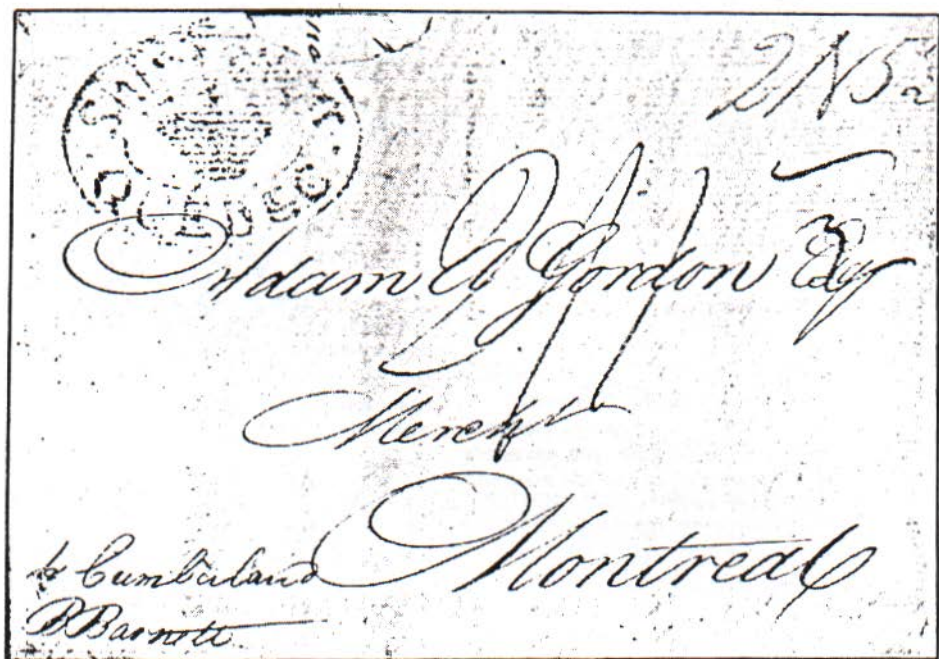 SHIP LR
QUEBEC
Adam L Gordon Esqr
Mercht
Montreal
pr Cumberland
B Barnett